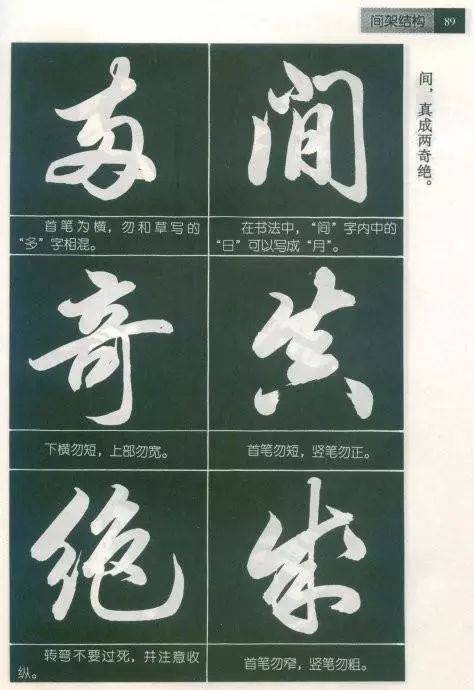 间架结构 89
间，真成两奇绝。
間
在书法中，“间”字内中的
“日”可以写成“月”。
真
首笔勿短，竖笔勿正。
成
首笔勿窄，竖笔勿粗。
两
首笔为横，勿和草写的
“多”字相混。
奇
下横勿短，上部勿宽。
绝
转弯不要过死，并注意收
纵。